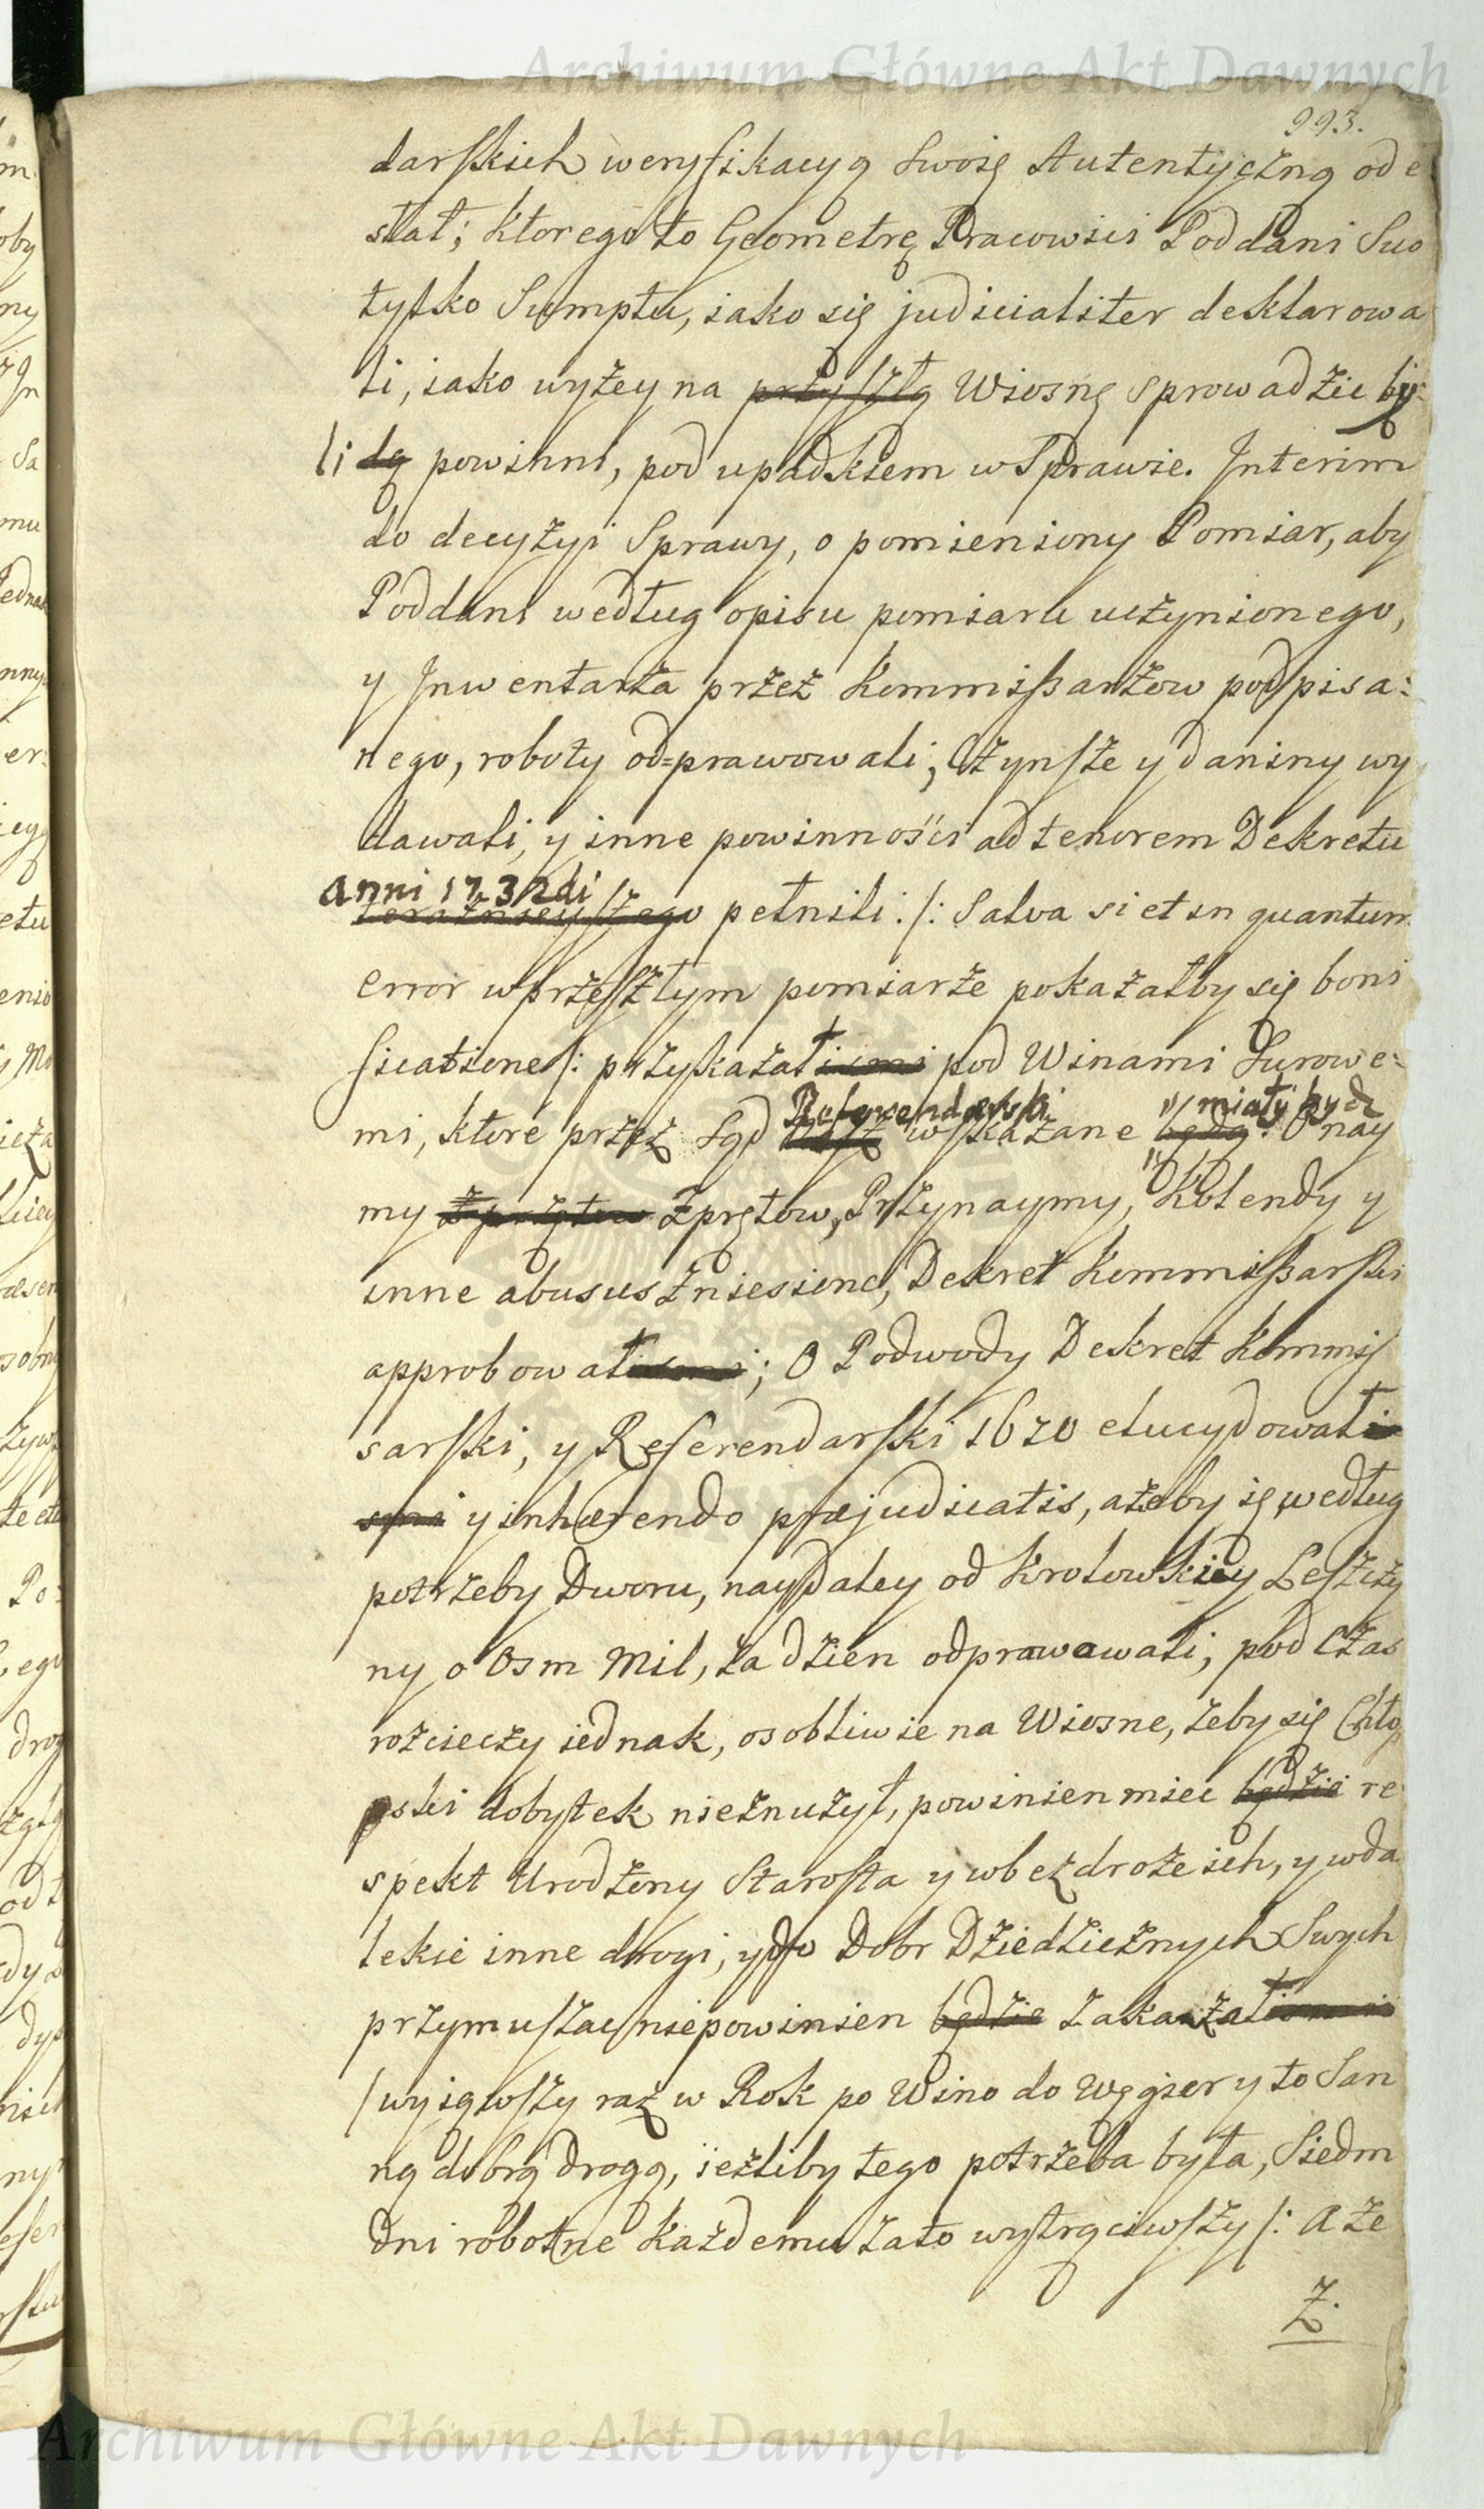 Archiwum Główne Akt Dawnych
993.
darskich weryfikacyą Swoię Autentyczną ode
słał; ktorego to Geometrę Pracowici Poddani Suo
tylko Sumptu, iako się judicialiter deklarowa
li, iako wyżey na przyszłą Wiosnę sprowadzic by:
li dą powinni, pod upadkiem w Sprawie. Interim
do decyzyi Sprawy, o pomieniony Pomiar, aby
Poddani według opisu pomiaru uczynionego,
y Inwentarza przez Kommissarzow podpisa:
nego, roboty od=prawowali, Czynsze y daniny wy
dawali, y inne powinności ad tenorem Dekretu
anni 1732di
teraznieyszego pełnili. /: Salva si et in quantum
error w przeszłym pomiarze pokazałby się boni
ficatione /: przykazał pod Winami Surowe:
Referendarski miały bydz
mi, ktore przez Sąd nasz wskazane będą. O nay
my zprzętow Zprętow, Przynaymy, Kolendy y
inne abusus zniesione, Dekret Kommissarski
approbował; O Podwody Dekret Kommis
sarski, y Referendarski 1670 elucydował
smi y inhærendo præjudicatis, ażeby ię według
potrzeby Dworu, naydaley od Krolowskiey Leszczy
ny o Osm Mil, za dzien odprawowali; pod Czas
rozcieczy iednak, osobliwie na Wiosne, żeby się Chło
pski dobytek nieznużył, powinien miec będzie re
spekt Urodzony Starosta y w bezdroże ich, y w da
lekie inne drogi, y do Dobr Dziedzicznych Swych
przymuszac niepowinien będzie Zakazał
/wyiąwszy raz w Rok po Wino do Węgier y to San
ną dobrą drogą, ieżliby tego potrzeba była, Siedm
dni robotne każdemu zato wytrąciwszy /: A że
Z.
Archiwum Główne Akt Dawnych